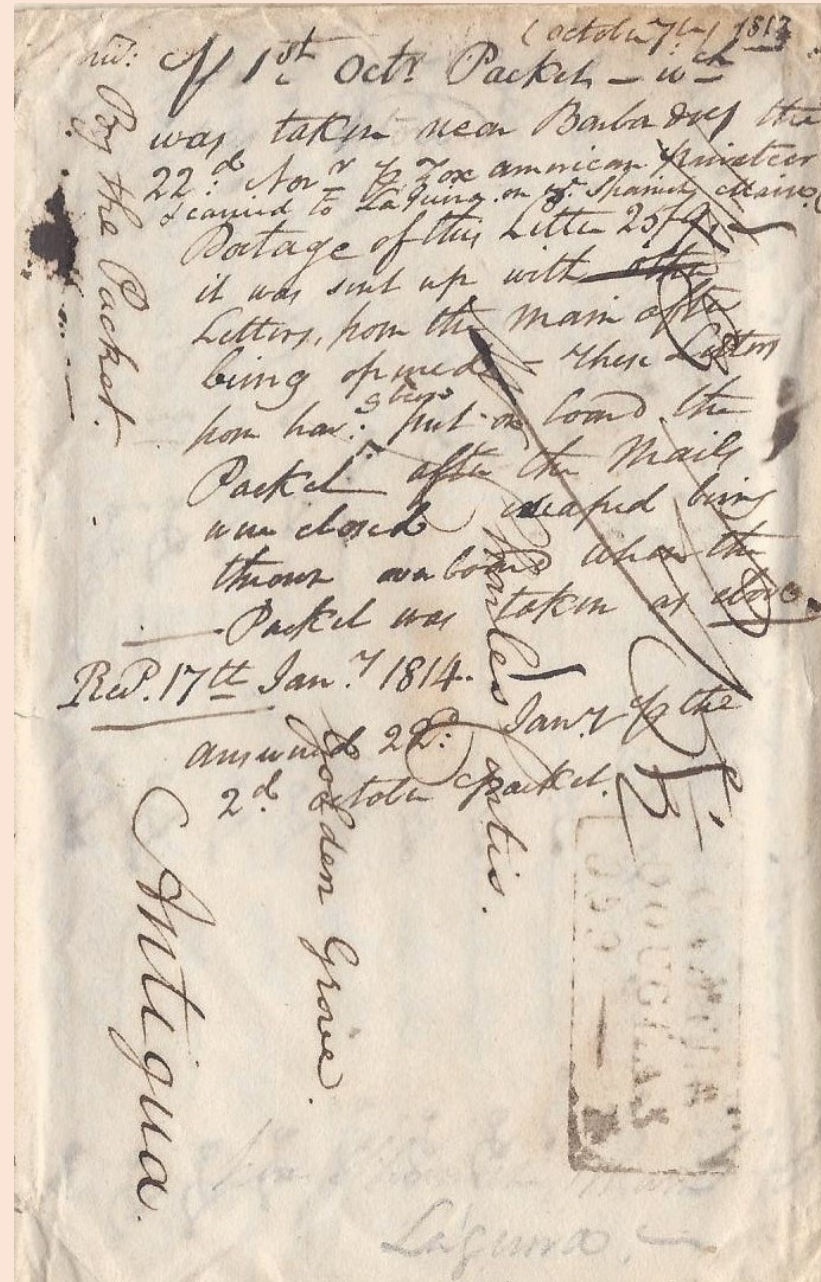 (October 7th) 1813
1st Octr. Packet – wch
was taken near Barbadoes the
22d. Novr pr Fox american privateer
& carried to La Guira on ye. Spanish Maine
Postage of this Letter 25/9
it was sent up with other
Letters, from the main after
being opened – These Letters
from havg. been put on board the
Packet after the Mails
were closed escaped being
thrown overboard when the
Packet was taken as above.
Recd. 17th Jany 1814.
answered 22d: Jany pr the
2d. October packet.
By the Packet.
Charles
Golden Grove.
Antigua.
DOUGLAS
Laguira